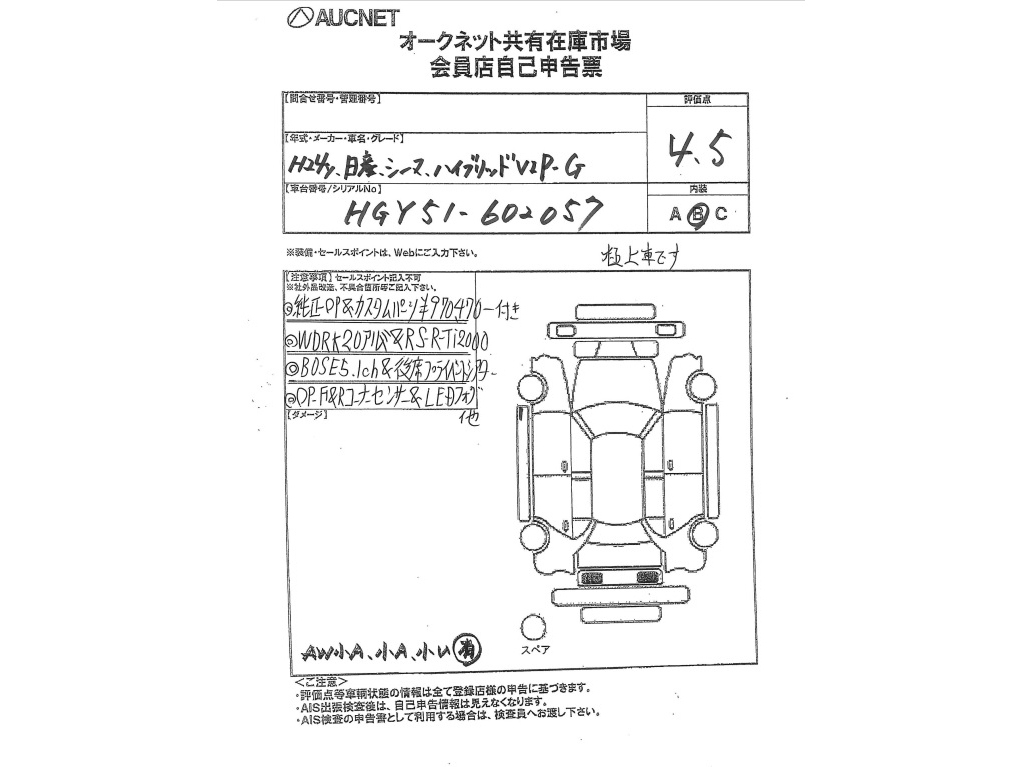 AUCNET
オークネット共有在庫市場
会員店自己申告票
【問合せ番号・管理番号】
評価点
4.5
【年式・メーカー・車名・グレード】
H24/y、日産、シーマ、ハイブリッドVIP-G
【車台番号/シリアルNo】
内装
HGY51-602057
A B C
※装備・セールスポイントは、Webにご入力下さい。
極上車です
【注意事項】セールスポイント記入不可
※社外品改造、不具合箇所等ご記入下さい。
◎純正OP&カスタムパーツ¥970,470-付き
◎WORK20アルミ&RS-R-Ti2000
◎BOSE5.1ch&後席プライベートシアター
◎OP-F&Rコーナーセンサー&LEDフォグ
他
【ダメージ】
AW小A、小A、小U 有
スペア
<ご注意>
・評価点等車輌状態の情報は全て登録店様の申告に基づきます。
・AIS出張検査後は、自己申告情報は見えなくなります。
・AIS検査の申告書として利用する場合は、検査員へお渡し下さい。